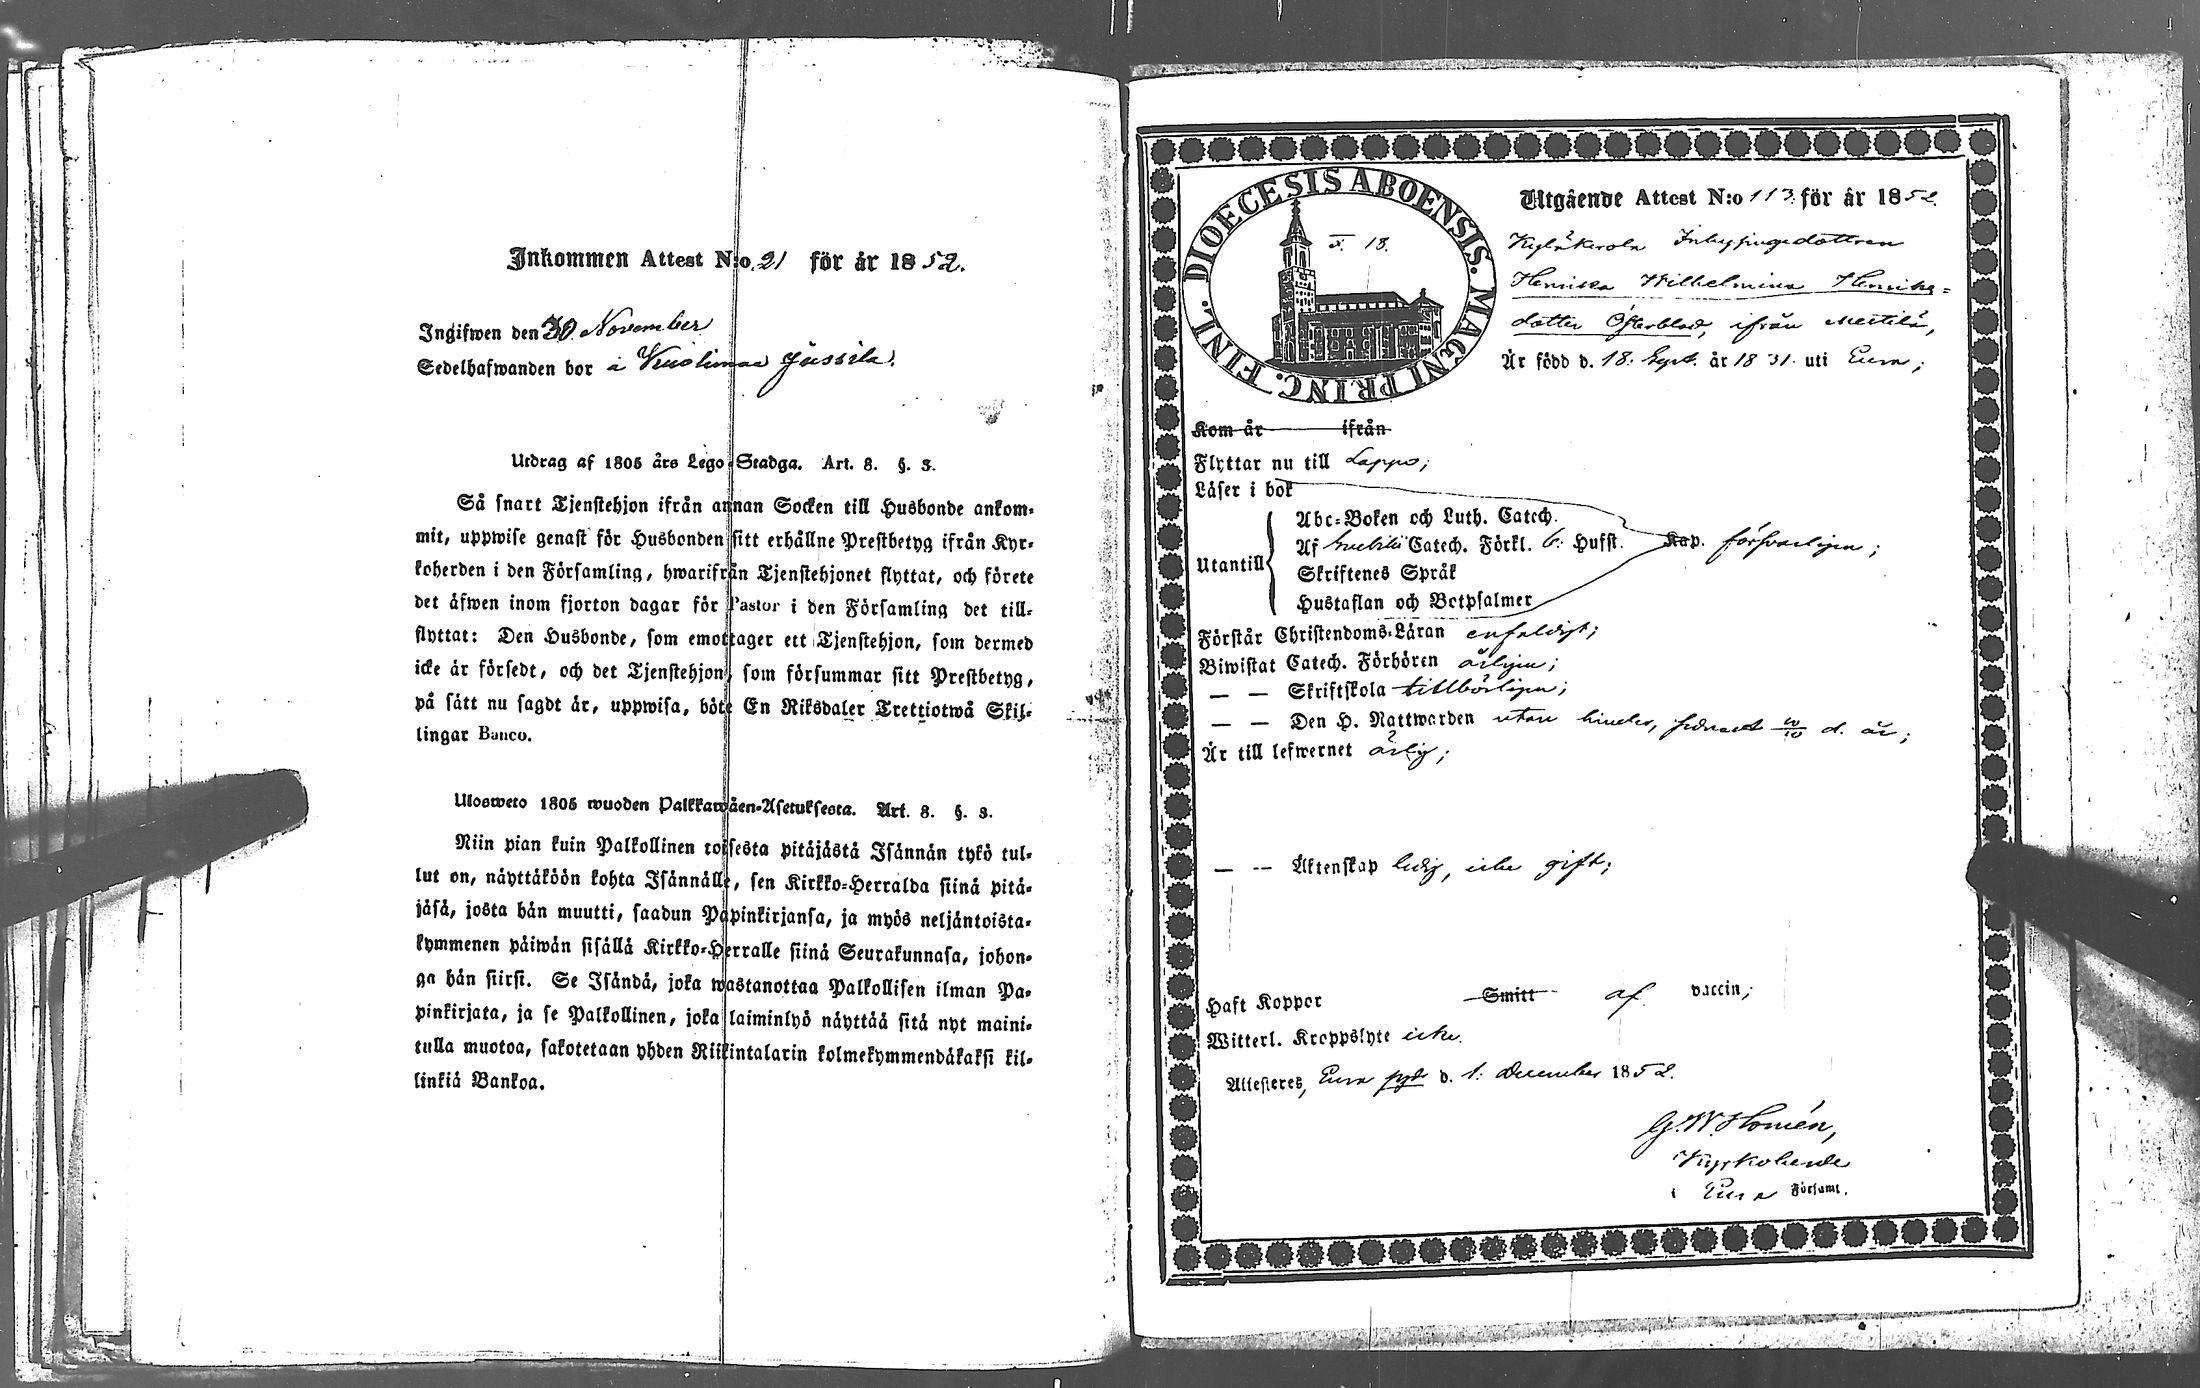 Inkommen Attest N:o 21 för år 1852.
Ingifwen den 30 November
Sedelhafwanden bor å Jussila.
Utdrag af 1805 års Lego-Stadga. Art. 8. §. 3.
Så snart Tjenstehjon ifrån annan Socken till Husbonde ankom-
mit, uppwise genast för Husbonden sitt erhållne Prestbetyg ifrån Kyr-
koherden i den Församling, hwarifrån Tjenstehjonet flyttat, och förete
det äfwen inom fjorton dagar för Pastor i den Församling det till-
flyttat: Den Husbonde, som emottager ett Tjenstehjon, som dermed
icke är försedt, och det Tjenstehjon, som försummar sitt Prestbetyg,
på sätt nu sagdt är, uppwisa, böte En Riksdaler Trettiotwå Skil-
lingar Banco.
Ulosweto 1805 wuoden Palkkawäen-Asetuksesta. Art. 8. §. 3.
Niin pian kuin Palkollinen toisesta pitäjästä Isännän tykö tul-
lut on, näyttäköön kohta Isännälle, sen Kirkko-Herralda siinä pitä-
jäsä, josta hän muutti, saadun Papinkirjansa, ja myös neljäntoista-
kymmenen päiwän sisällä Kirkko-Herralle siinä Seurakunnasa, johon-
ga hän siirsi. Se Isändä, joka wastanottaa Palkollisen ilman Pa-
pinkirjata, ja se Palkollinen, joka laiminlyö näyttää sitä nyt maini-
tulla muotoa, sakotetaan yhden Riikintalarin kolmekymmendäkaksi kil-
linkiä Bankoa.
DIOECESIS ABOENSIS. MAGNI PRINC. FINL.
18.
Utgående Attest N:o 113 för år 1852.
Inhysingedottren
Henrica Wilhelmina Henriks-
dotter Österblad, ifrån Mestilä,
Är född d. 18. Sept. år 1831. uti Eura;
Kom år ifrån
Flyttar nu till Lappo;
Läser i bok
Utantill
Abc-Boken och Luth. Catech.
Af Svebilii Catech. Förkl. 6: Hufst. Kap. försvarligen;
Skriftenes Språk
Hustaflan och Botpsalmer
Förstår Christendoms-Läran enfaldigt;
Biwistat Catech. Förhören årligen;
— — Skriftskola tillbörligen;
— — Den H. Nattwarden utan hinder, d. år;
Är till lefwernet ärlig;
— — Äktenskap ledig, icke gift;
Haft Koppor Smitt af vaccin;
Witterl. Kroppslyte icke.
Attesteres, Eura d. 1. December 1852.
G. W. Homén,
Kyrkoherde
i Eura Församl.